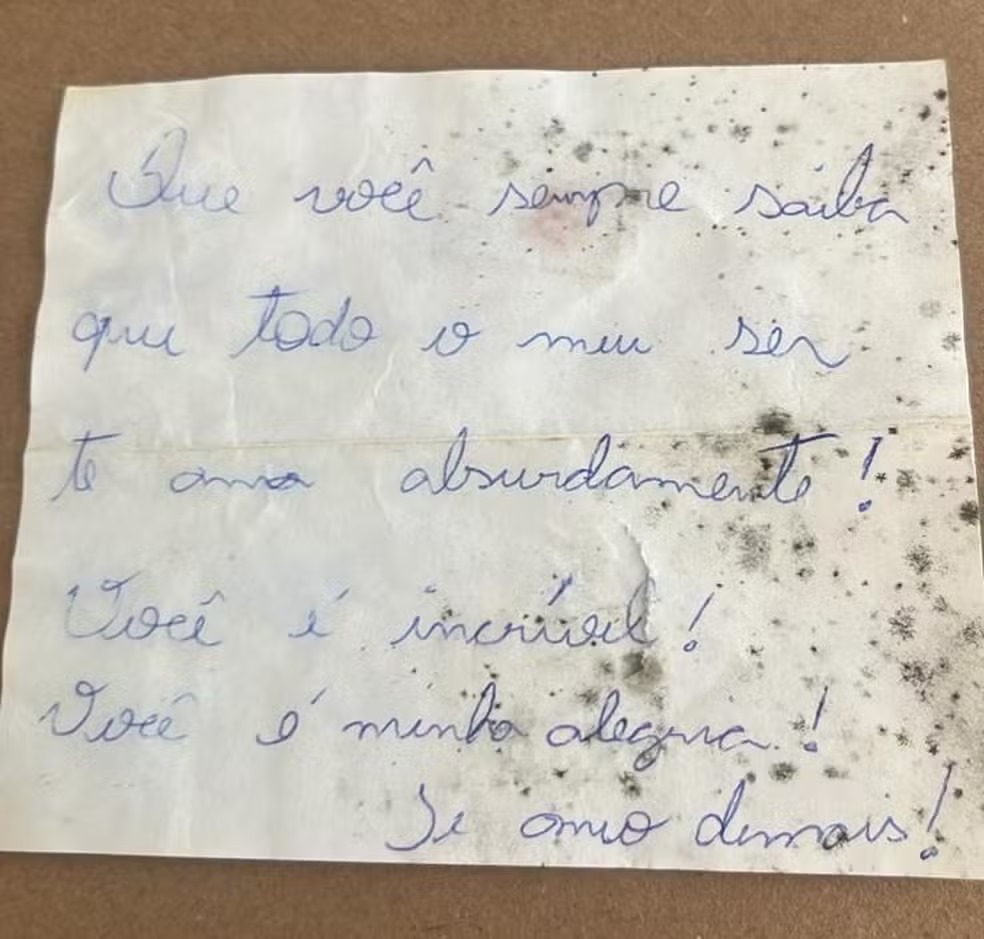 Que você sempre saiba
que todo o meu ser
te ama absurdamente!
Você é incrível!
Você é minha alegria!
Te amo demais!